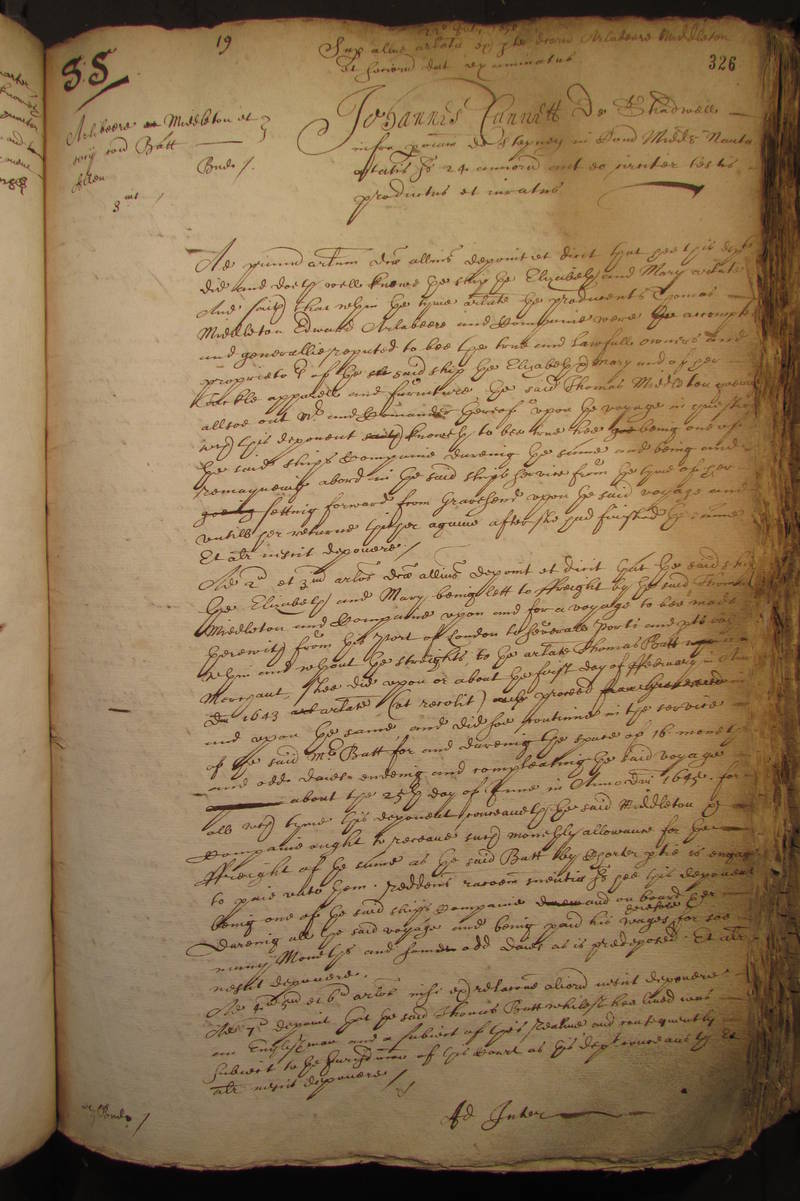 19
326
SS
Sup allne arlata ex pte Arlabeere Middleton
et examinatus
Arlabeere Middleton et
con Batt
Allen
Bud
3us
Johannes Cannett de Shadwell
infra de Stepney in Com Midds Nauta
aetatis 24 annorum aut eo circiter testis
productus et iuratus
Ad primum arlum dce allnis deponit et dicit that hee this dept
did and doeth well knowe the shipp the Elizabeth and Mary arlate
And saith that within the tyme arlate the producents Thomas
Middleton Edward Arlabeere and Companie were the accompted
and generallie reputed to bee the true and lawfull owners and
proprietors of the said ship the Elizabeth & Mary and of her
tackle apparell and furniture the said Thomas Middleton
alsoe out and Comander thereof upon the voyage in question
wch this deponent knoweth to bee true hee being one of
the said ships Companie dureing the same and being and
remayneing abord in the said ships service from the tyme of her
setting forward from Gravesend upon the said voyage and
untill her returne hither againe after she had finished the same
Et alr nescit deponere /
Ad 2m et 3m arlos dce allnis deponit et dicit that the said ship
the Elizabeth and Mary being lett to ffreight by the said Thomas
Middleton and Companie upon and for a voyage to bee made
therewith from this Port of London to severall Ports and places
within and without the streights, to the arlate Thomas Batt
Merchant, hee did upon or about the first day of ffebruary in Anno
Dni 1643 arlate (et recolit) proceed
and upon the same, and did soe continue in the service
of the said Mr Batt for and dureing the space of 16 moneths
and odd daies endeing and compleating the said voyage
about the 25th day of June in Anno Dni 1645. for
all wch tyme this deponent conceaveth the said Middleton &
Companie ought to receave such monethly allowance for the
ffreight of the same as the said Batt by Charter ptie is engaged
to paie unto them. reddens racoem scientiae hee this deponent
being one of the said ships Companie and on board her
dureing all the said voyage and being paid his wages therefore for soe
many Moneths and some odd daies as is predeposed. Et alr
nescit deponere.
Ad 4m 5m et 6m arlos nisi ex relatione aliorum nescit deponere
Ad 7m deponit that the said Thomas Batt whilest hee lived was
an Englishman and a subiect of this Realme and consequently
subiect to the Jurisdiction of this Court as this dept conceaveth Et
alr nescit deponere /
Ad Inter